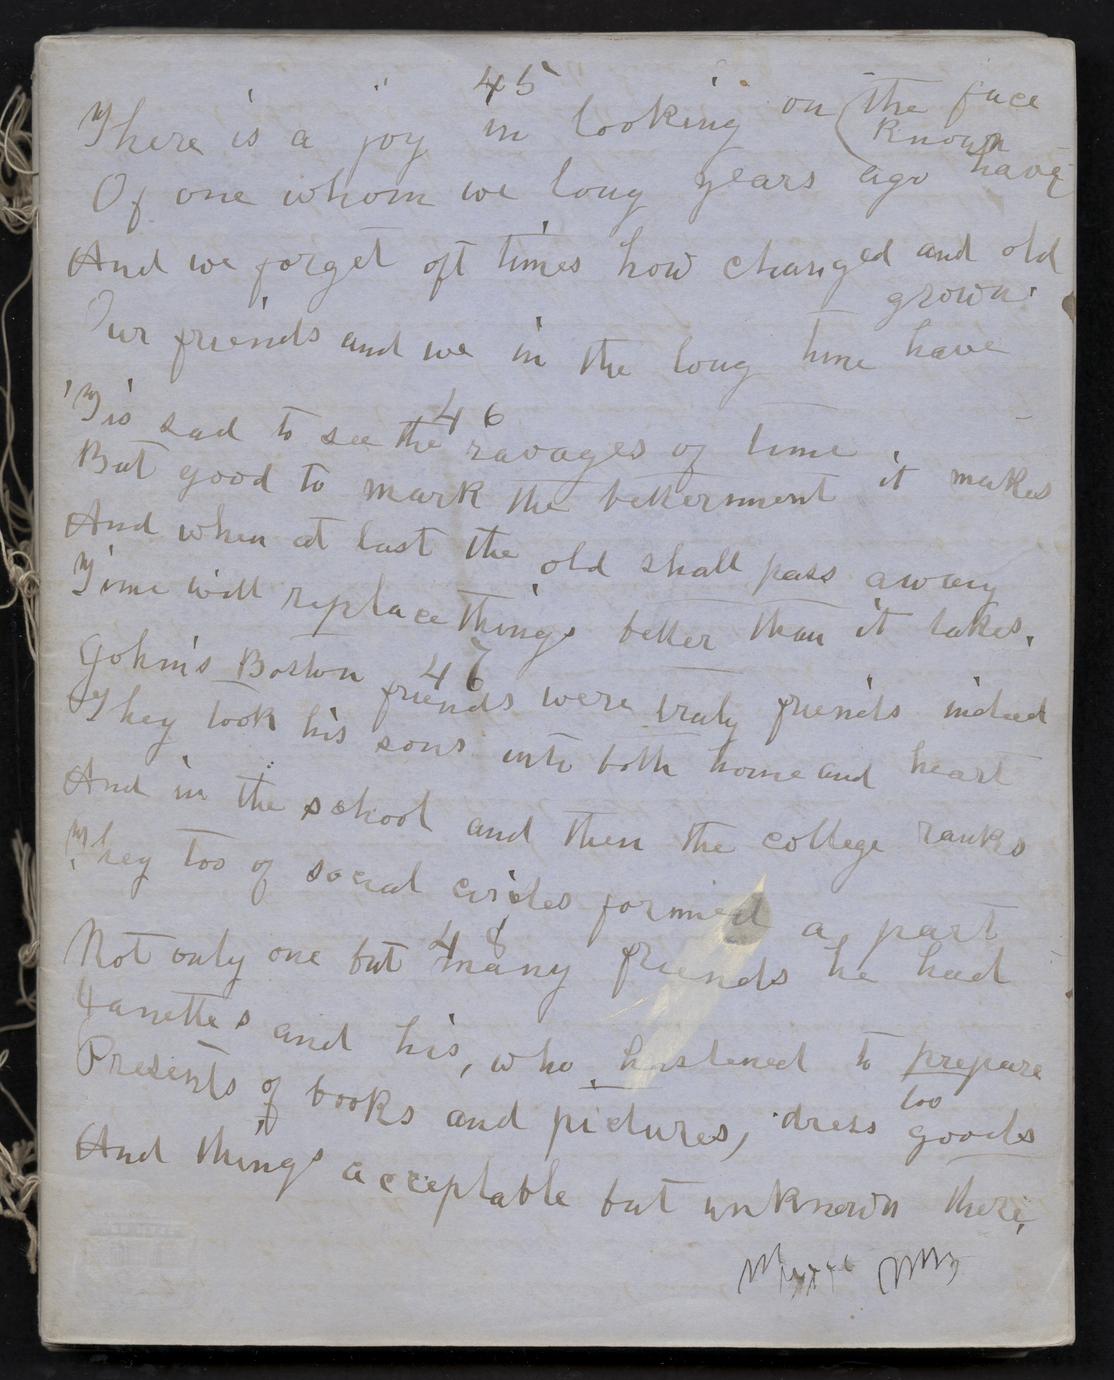 45
There is a joy in looking on (the face
Of one whom we long years ago have
known
And we forget oft times how changed and old
Our friends and we in the long time have
grown.
46
'Tis sad to see the ravages of time
But good to mark the betterment it makes
And when at last the old shall pass away
Time will replace things better than it takes.
47
John's Boston friends were truly friends indeed
They took his sons into both home and heart
And in the school and then the college ranks
They too of social circles formed a part
48
Not only one but many friends he had
Janette's and his, who hastened to prepare
Presents of books and pictures, dress goods
too
And things acceptable but unknown there,